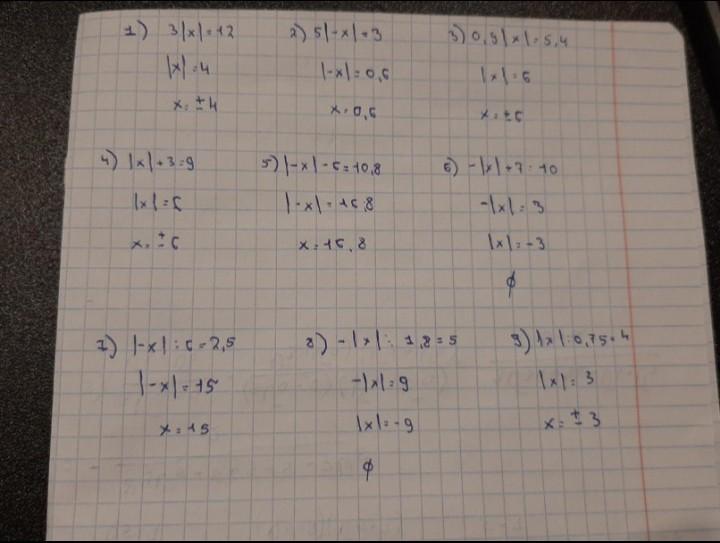 1) 3|x|=12 2) 5|-x|=3 3) 0,9|x|=5,4
|x|=4 |-x|=0,6 |x|=6
x=±4 x=0,6 x=±6
4) |x|+3=9 5) |-x|-6=10,8 6) -|x|+7=10
|x|=6 |-x|=16,8 -|x|=3
x=±6 x=16,8 |x|=-3
∅
7) |-x|:6=2,5 8) -|x|:1,8=5 9) |x|:0,75=4
|-x|=15 -|x|=9 |x|=3
x=15 |x|=-9 x=±3
∅